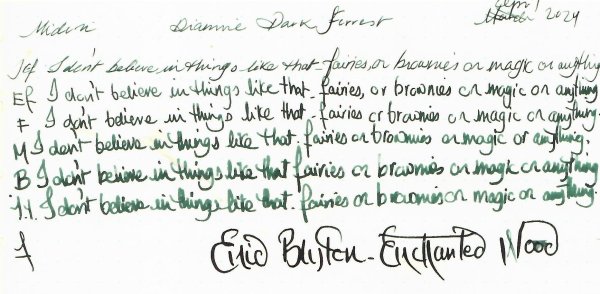 Midori Diamine Dark Forrest April 2024
Jef I don't believe in things like that - fairies, or brownies or magic or anything
Ef I don't believe in things like that - fairies, or brownies or magic or anything
F I don't believe in things like that - fairies or brownies or magic or anything.
M I don't believe in things like that - fairies or brownies or magic or anything.
B I don't believe in things like that fairies or brownies or magic or anything
1.1 I don't believe in things like that - fairies or brownies or magic or anything.
F Enid Blyton - Enchanted Wood